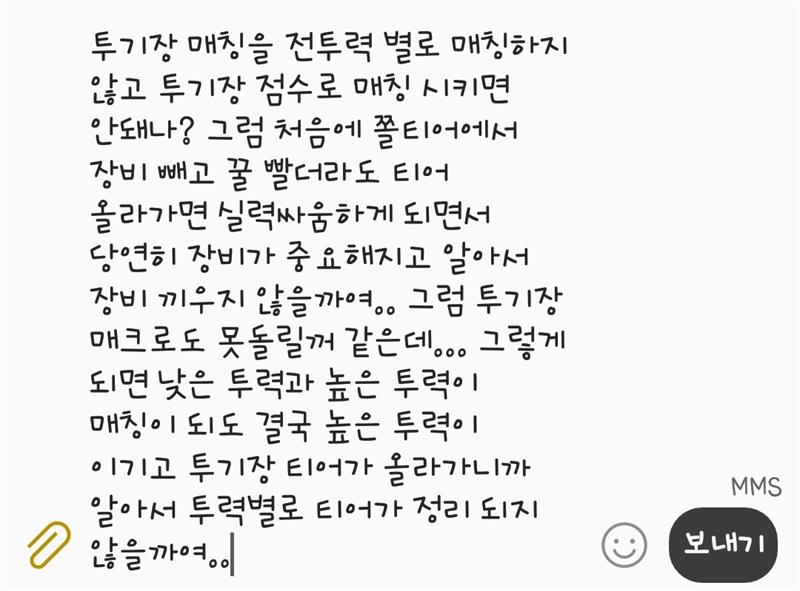 투기장 매칭을 전투력 별로 매칭하지
않고 투기장 점수로 매칭 시키면
안돼나? 그럼 처음에 쫄티어에서
장비 빼고 꿀 빨더라도 티어
올라가면 실력싸움하게 되면서
당연히 장비가 중요해지고 알아서
장비 끼우지 않을까여.. 그럼 투기장
매크로도 못돌릴꺼 같은데... 그렇게
되면 낮은 투력과 높은 투력이
매칭이 되도 결국 높은 투력이
이기고 투기장 티어가 올라가니까
알아서 투력별로 티어가 정리 되지
않을까여..
MMS
보내기